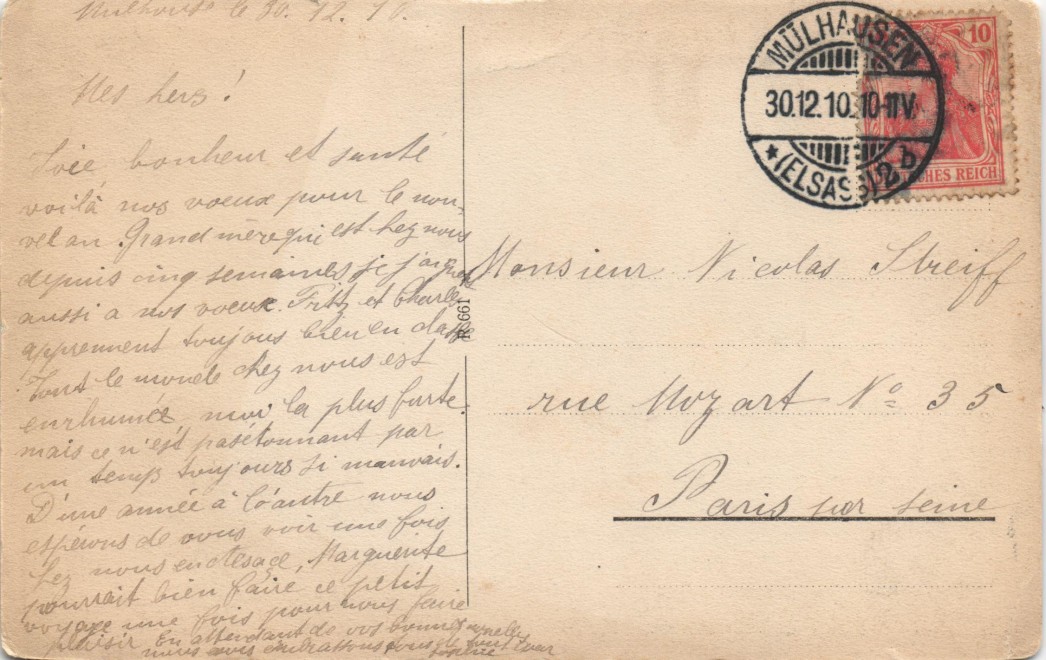 Mulhouse le 30. 12. 10.
Mes hers!
Joie bonheur et santé
voilà nos voeux pour le nou-
vel an. Grand mère qui est hez nous
depuis cinq semaines se joigne
aussi a nos voeux. Fritz et Charles
apprennent toujous bien en classe
Tout le monde chez nous est
enrhumée moi la plus forte.
mais ce n'est pas étonnant par
un temps toujours si mauvais.
D'une année à l'óautre nous
espérons de vous voir une fois
hez nous en Alsace, Marguerite
pourrait bien faire ce petit
voyage une fois pour nous faire
plaisir. En attendant de vos bonnes nouvelles
nous vous embrassons tous de tout cœur
MÜLHAUSEN
30.12.10. 10-11V.
*(ELSASS) 2b
10
DEUTSCHES REICH
R. 661
Monsieur Nicolas Streiff
rue Mozart No 35
Paris sur seine